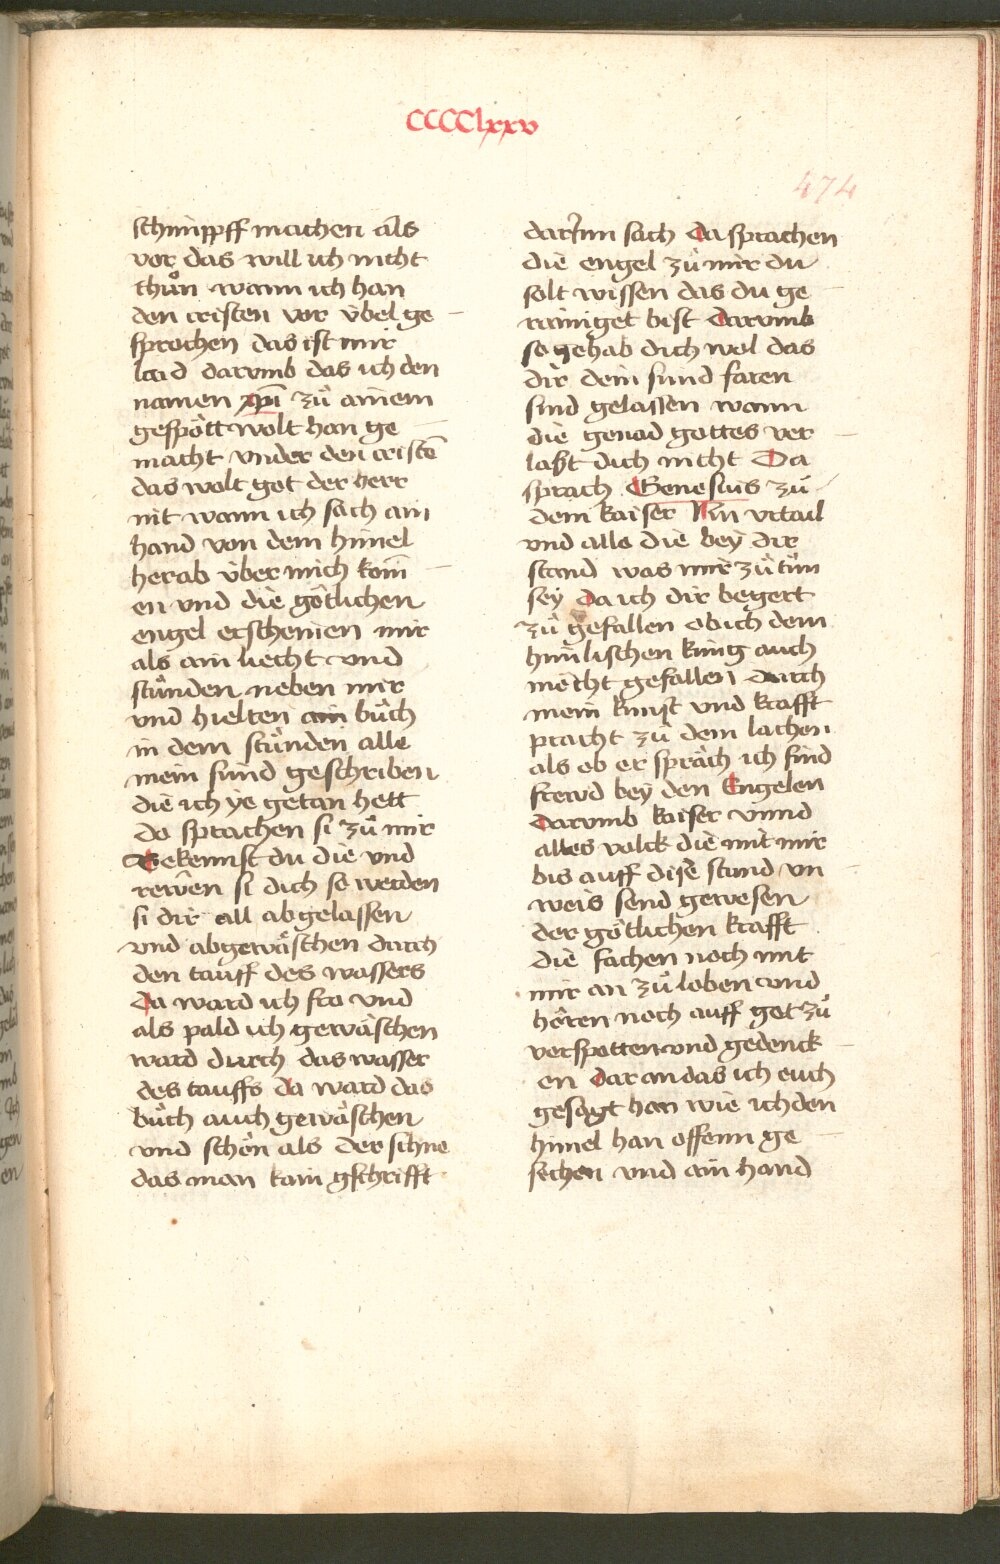 CCCClxxv
474
schimpff machen als
vor das will ich nicht
thuͦn wann ich han
den cristen vor v̈bel ge
sprochen das ist mir
laid darumb das ich den
namen xp̄i zuͦ ainem
gespött wolt han ge
macht vnder den cristē
das wolt got der herr
nit wann ich sach ain
hand von dem himel
herab v̈ber mich kom̄
en vnd die götlichen
engel erschenien mir
als ain liecht vnd
stuͦnden neben mir
vnd hielten ain buͦch
in dem stuͦnden alle
mein sünd geschriben
die ich ye getan hett
do sprachen si zuͦ mir
Bekennst du die vnd
rewen si dich so werden
si dir all abgelassen
vnd abgewäschen durch
den tauff des wassers
Da ward ich fro vnd
als pald ich gewäschen
ward durch das wasser
des tauffs da ward das
buͦch auch gewäschen
vnd schön als der schne
das man kain gschrifft
darinn sach Da sprachen
die engel zuͦ mir du
solt wissen das du ge
rainiget bist Darumb
so gehab dich wol das
dir dein sund faren
sind gelassen wann
die genad gottes ver
laßt dich nicht Da
sprach Genesius zuͦ
dem kaiser Nin vrtail
vnd alle die bey dir
stand was mir zuͦ tuͦn
sey Da ich dir begert
zuͦ gefallen ob ich dem
him̄lischen küng auch
mecht gefallen durch
mein kunst vnd krafft
pracht zuͦ dem lachen
als ob er spräch ich find
frewd bey den Engelen
Darumb kaiser vnnd
alles volck die mit mir
bis auff dise stund vn
weis send gewesen
der götlichen krafft
die fachen noch mit
mir an zuͦ loben vnd
hören noch auff got zuͦ
verspotten vnd gedenck
en Dar an das ich euch
gesagt han wie ich den
himel han offenn ge
sechen vnd ain hand